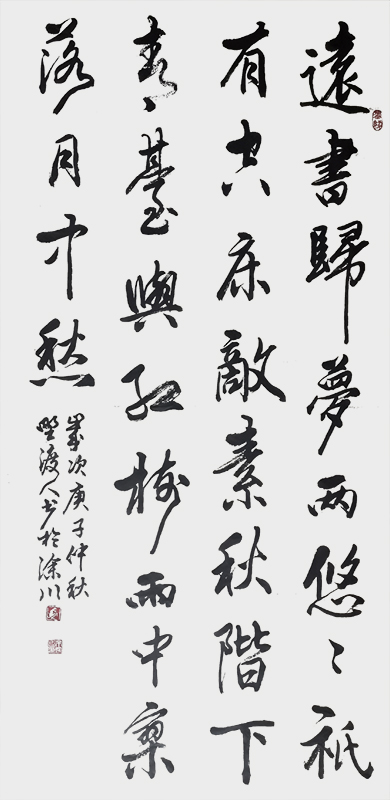 遠書歸夢兩悠〻祇
有空床敵素秋階下
青臺與紅樹雨中寥
落月中愁
歲次庚子仲秋
野渡人书於滁川